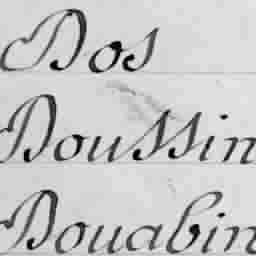 Dos
Doussin
Douabin